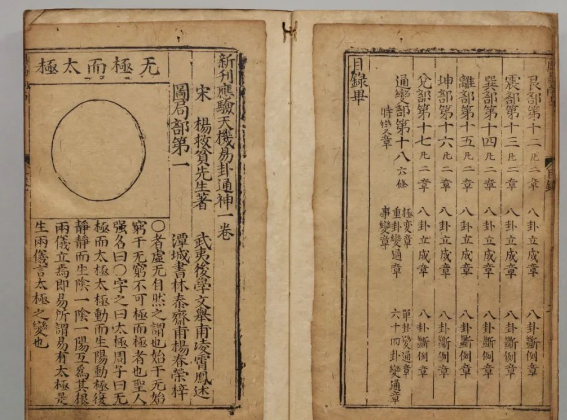 艮部第十二 凡二章 八卦立成章 八卦斷例章
震部第十三 凡二章 八卦立成章 八卦斷例章
巽部第十四 凡二章 八卦立成章 八卦斷例章
離部第十五 凡二章 八卦立成章 八卦斷例章
坤部第十六 凡二章 八卦立成章 八卦斷例章
兌部第十七 凡二章 八卦立成章 八卦斷例章
通變部第十八 六條 極變章 單卦變通章
重卦變通章 六十四卦變通章
事變章
目錄畢
新刊應驗天機易卦通神一卷
宋 楊救貧先生著 武夷後學文舉甫凌霄鳳述
圖局部第一 潭城書林泰齋甫楊春榮梓
无極而太極
〇者虛无自然之謂也始于无始
窮于无窮不可極而極者也聖人
強名曰〇字之曰太極周子曰无
極而太極太極動而生陽動極復
靜靜而生陰一陰一陽互為其根
兩儀立焉即易所謂易有太極是
生兩儀言太極之變也